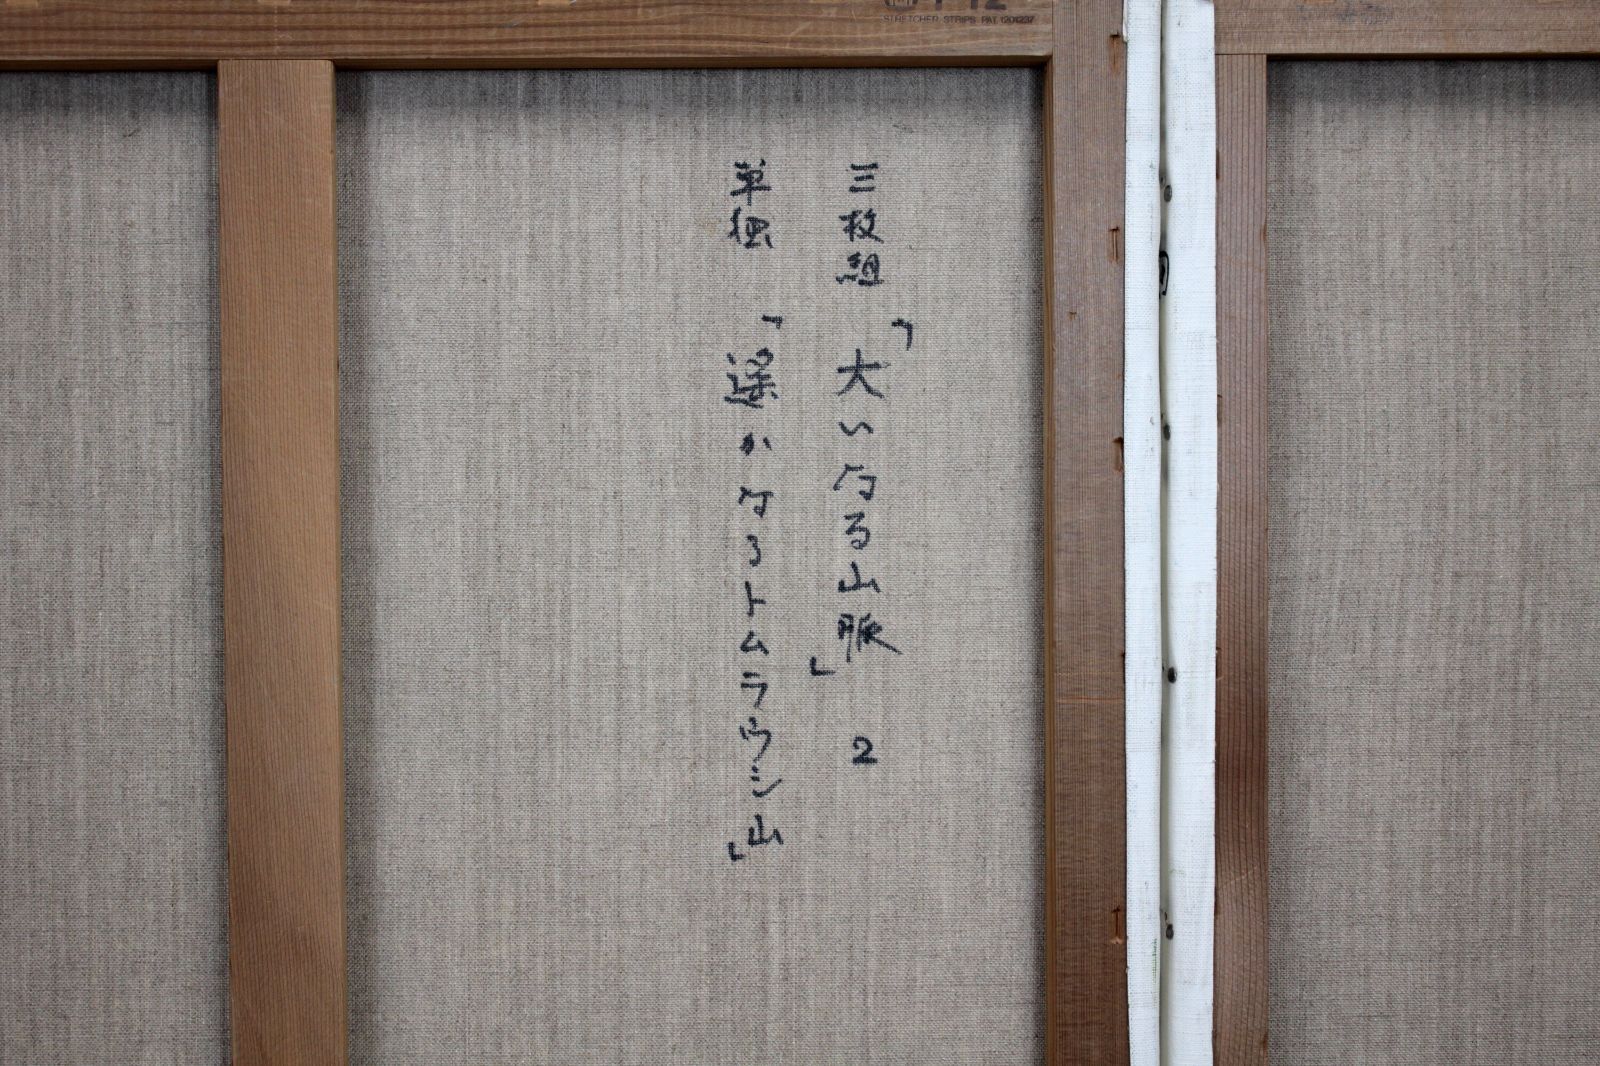 三枚組「大いなる山脈」 2
単独「遥かなるトムラウシ山」
STRETCHER STRIPS PAT. 1201237